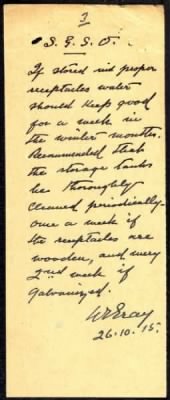 3
S.G.S.O.
If stored in proper
receptacles water
should keep good
for a week in
the winter months.
Recommended that
the storage tanks
be thoroughly
cleaned periodically.
Once a week if
the receptacles are
wooden, and every
2nd week if
galvanized.
26.10.15.